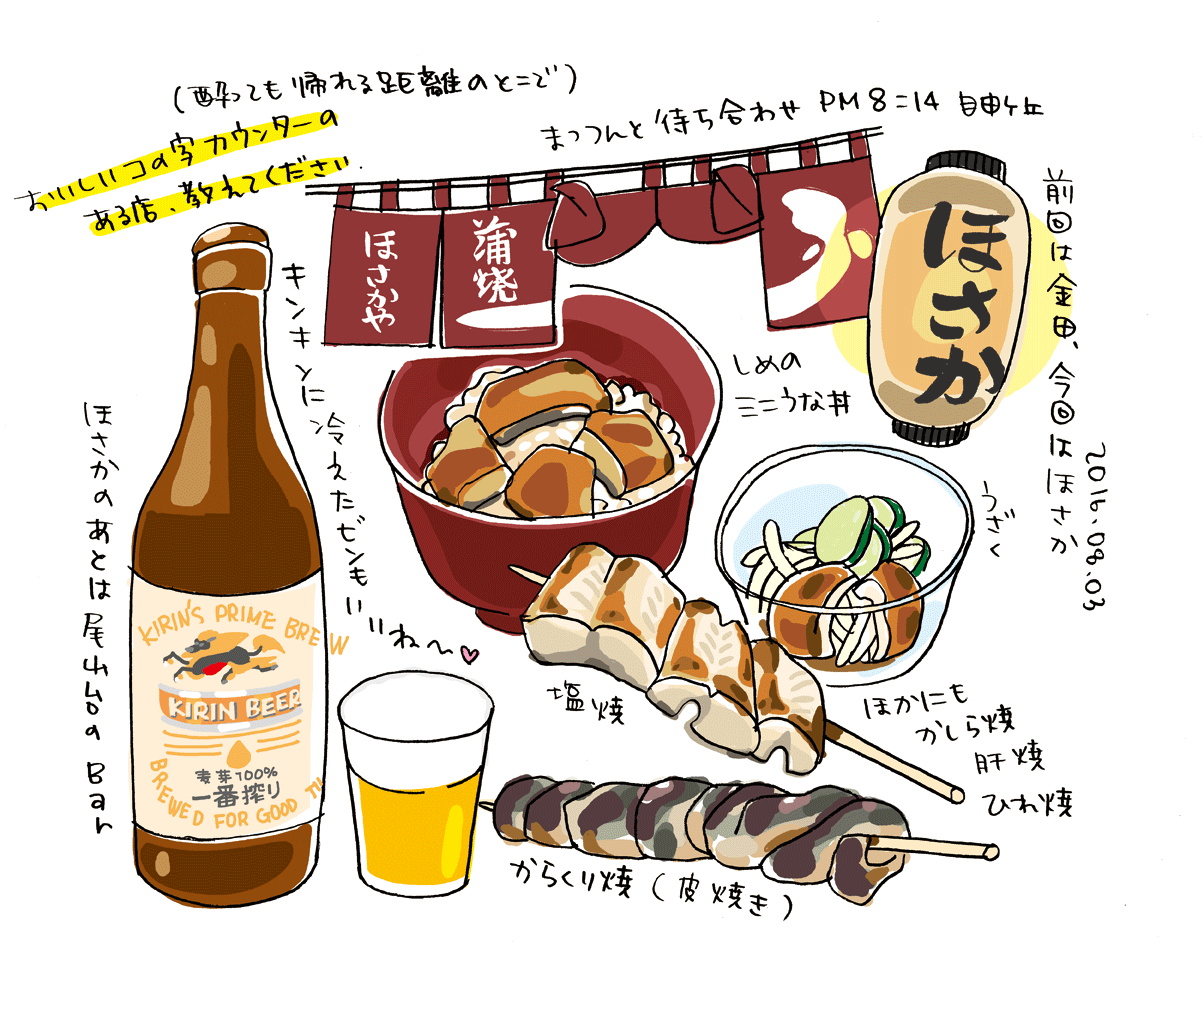 (酔っても帰れる距離のとこで)
おいしいコの字カウンターの
ある店、教えてください。
まっつんと待ち合わせ PM8=14 自由ヶ丘
ほさかや
蒲焼
う
ほさか
前回は金田、今回はほさか
2016.08.03
キンキンに冷えたビンもいいね〜
ほさかのあとは尾山台のBar
しめの
ミニうな丼
うざく
KIRIN'S PRIME BREW
KIRIN BEER
麦芽100%
一番搾り
BREWED FOR GOOD TI
塩焼
ほかにも
かしら焼
肝焼
ひれ焼
からくり焼(皮焼き)